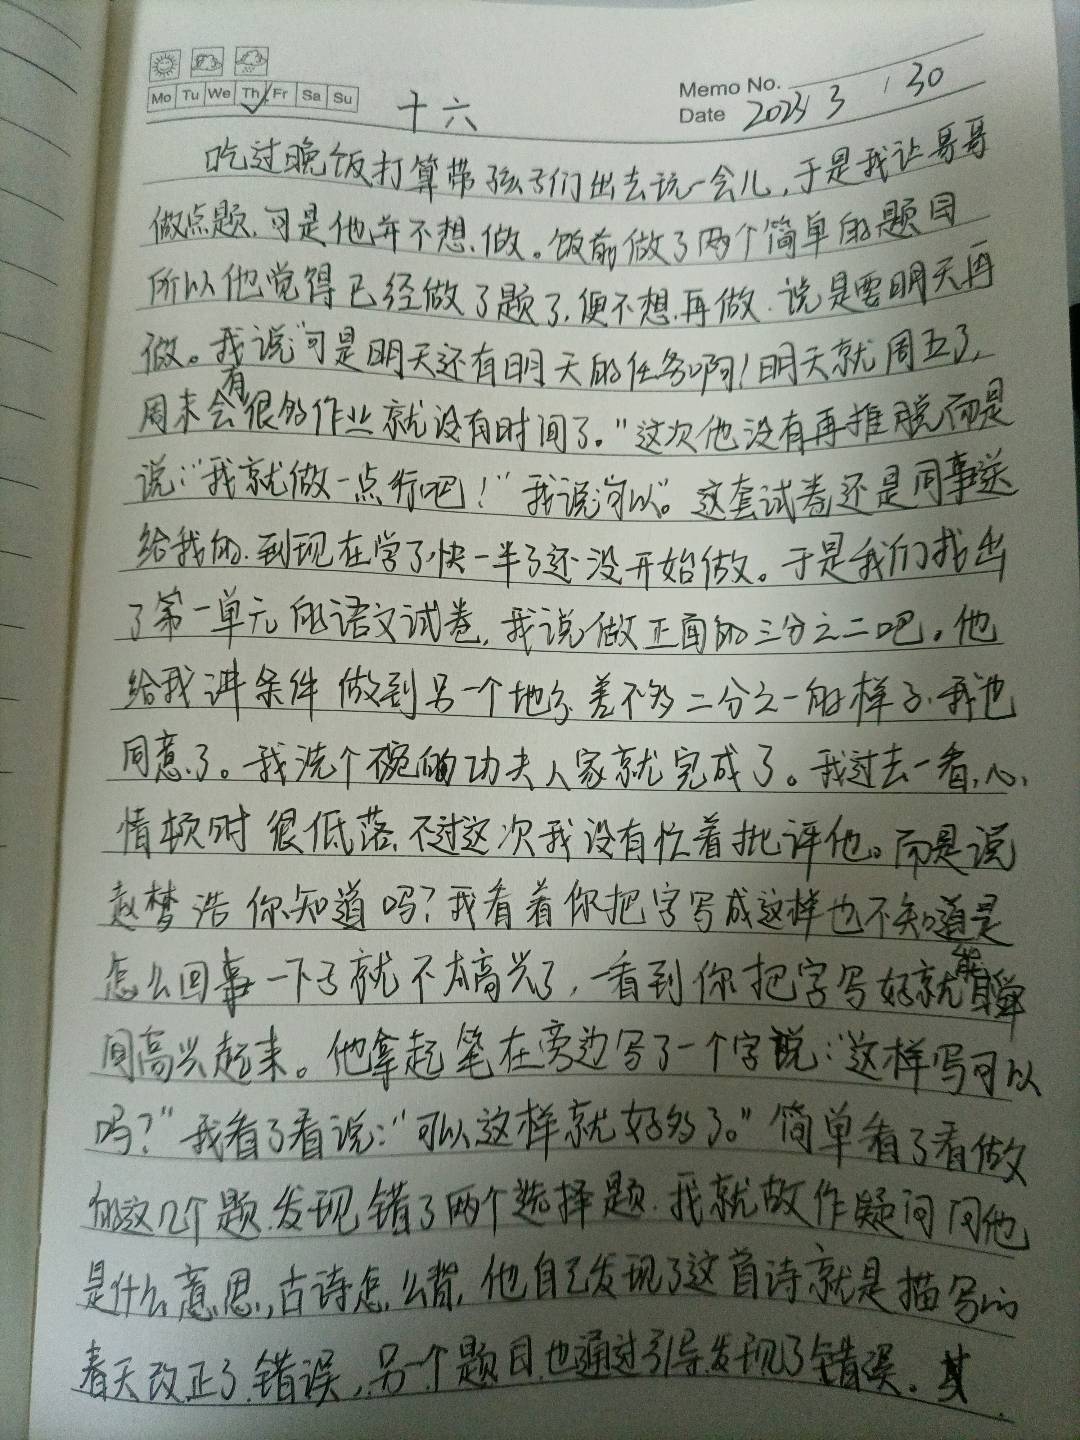 Mo Tu We Th Fr Sa Su
Memo No.
Date 2023 3 / 30
十六
吃过晚饭打算带孩子们出去玩一会儿,于是我让哥哥
做点题.可是他并不想做。饭前做了两个简单的题目
所以他觉得已经做了题了.便不想再做.说是要明天再
做。我说"可是明天还有明天的任务啊!明天就周五了,
周末会有很多作业就没有时间了。"这次他没有再推脱而是
说:"我就做一点行吧!"我说"可以"。这套试卷还是同事送
给我的.到现在学了快一半了还没开始做。于是我们找出
了第一单元的语文试卷,我说做正面的三分之二吧。他
给我讲条件做到另一个地方差不多二分之一的样子.我也
同意了。我洗个碗的功夫人家就完成了。我过去一看,心
情顿时很低落.不过这次我没有忙着批评他。而是说
赵梦浩你知道吗?我看着你把字写成这样也不知道是
怎么回事一下子就不太高兴了,一看到你把字写好就能瞬
间高兴起来。他拿起笔在旁边写了一个字说:"这样写可以
吗?"我看了看说:"可以这样就好多了。"简单看了看做
的这几个题.发现错了两个选择题.我就故作疑问问他
是什么意思,古诗怎么背,他自己发现了这首诗就是描写的
春天改正了错误,另一个题目也通过引导发现了错误。其